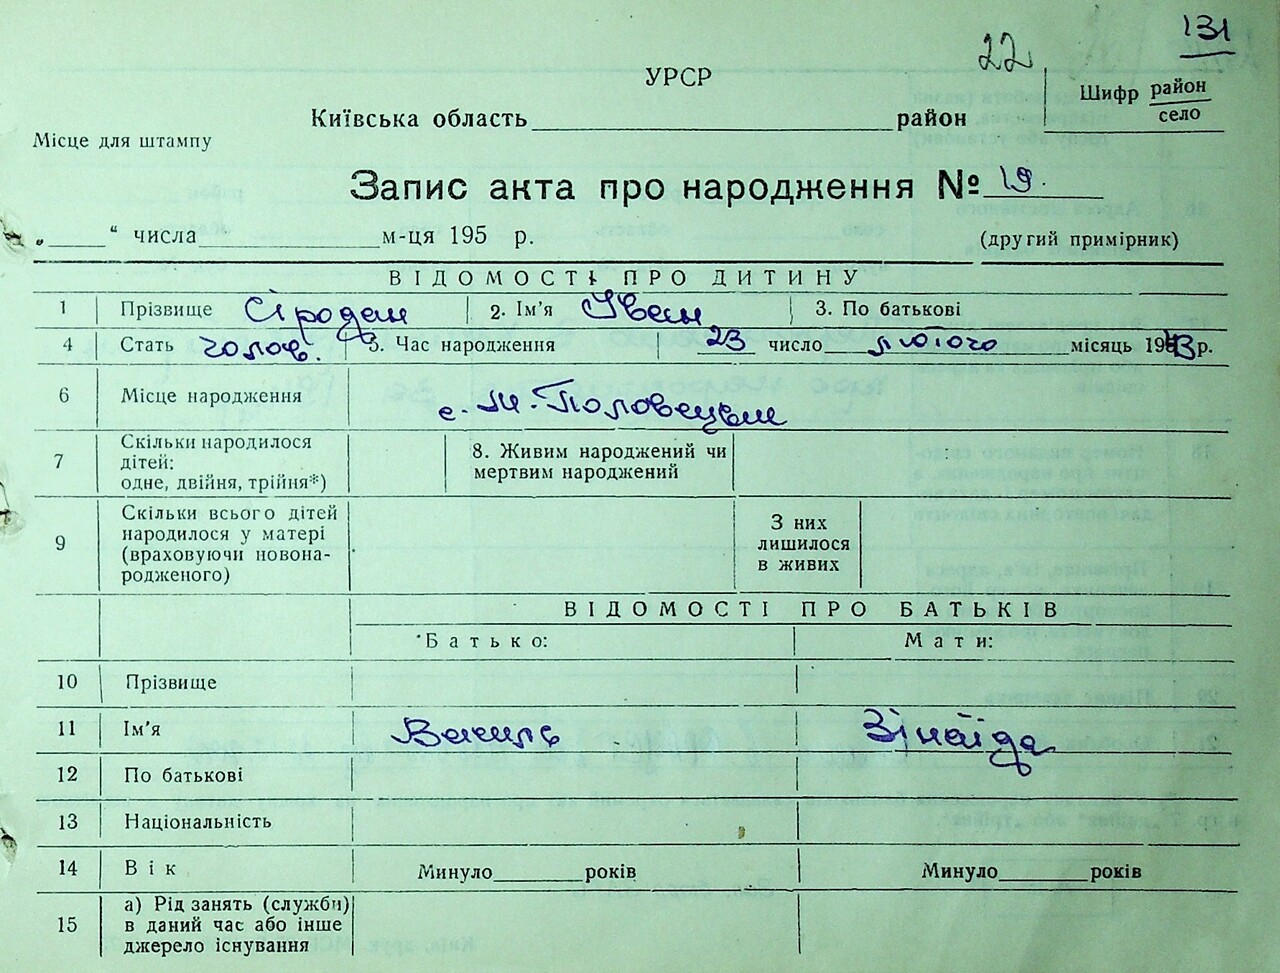 131
22
УРСР
Шифр район
село
Київська область район
Місце для штампу
Запис акта про народження № 19.
„ “ числа м-ця 195 р. (другий примірник)
ВІДОМОСТІ ПРО ДИТИНУ
1 Прізвище Сіродан 2. Ім'я Іван 3. По батькові
4 Стать чолов. 5. Час народження 23 число лютого місяць 1943 р.
6 Місце народження с. М-Половецьки
7 Скільки народилося дітей: одне, двійня, трійня*) 8. Живим народжений чи мертвим народжений
9 Скільки всього дітей народилося у матері (враховуючи новонародженого) З них лишилося в живих
ВІДОМОСТІ ПРО БАТЬКІВ
Батько: Мати:
10 Прізвище
11 Ім'я Василь Зінаїда
12 По батькові
13 Національність
14 Вік Минуло років Минуло років
15 а) Рід занять (служби) в даний час або інше джерело існування